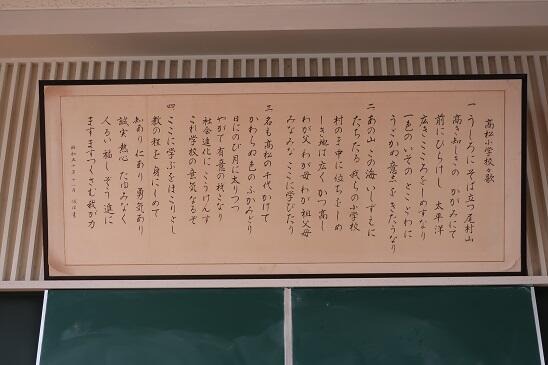 高松小学校々歌
一 うしろにそば立つ尾村山
高き知しきの かがみにて
前にひらけし 太平洋
広きこころをしめすなり
一色のいその とことわに
二 あの山 この海 いしずえに
たちたる 我らの小学校
村のま中に位ちをしめ
しき地は広く かつ高し
わが父 わが母 わが祖父母
みなみな ここに学びたり
三 名も高松の千代かけて
かわらぬ色のふかみどり
日にのび 月に太りつつ
やがて有意の材となり
社会進化に こうけんす
これ学校の意気なるぞ
四 ここに学ぶをほこりとし
教の程を 身にしめて
知あり 仁あり 勇気あり
誠実 熱心 たゆみなく
人るい福し そう進に
ますますつくさむ 我が力